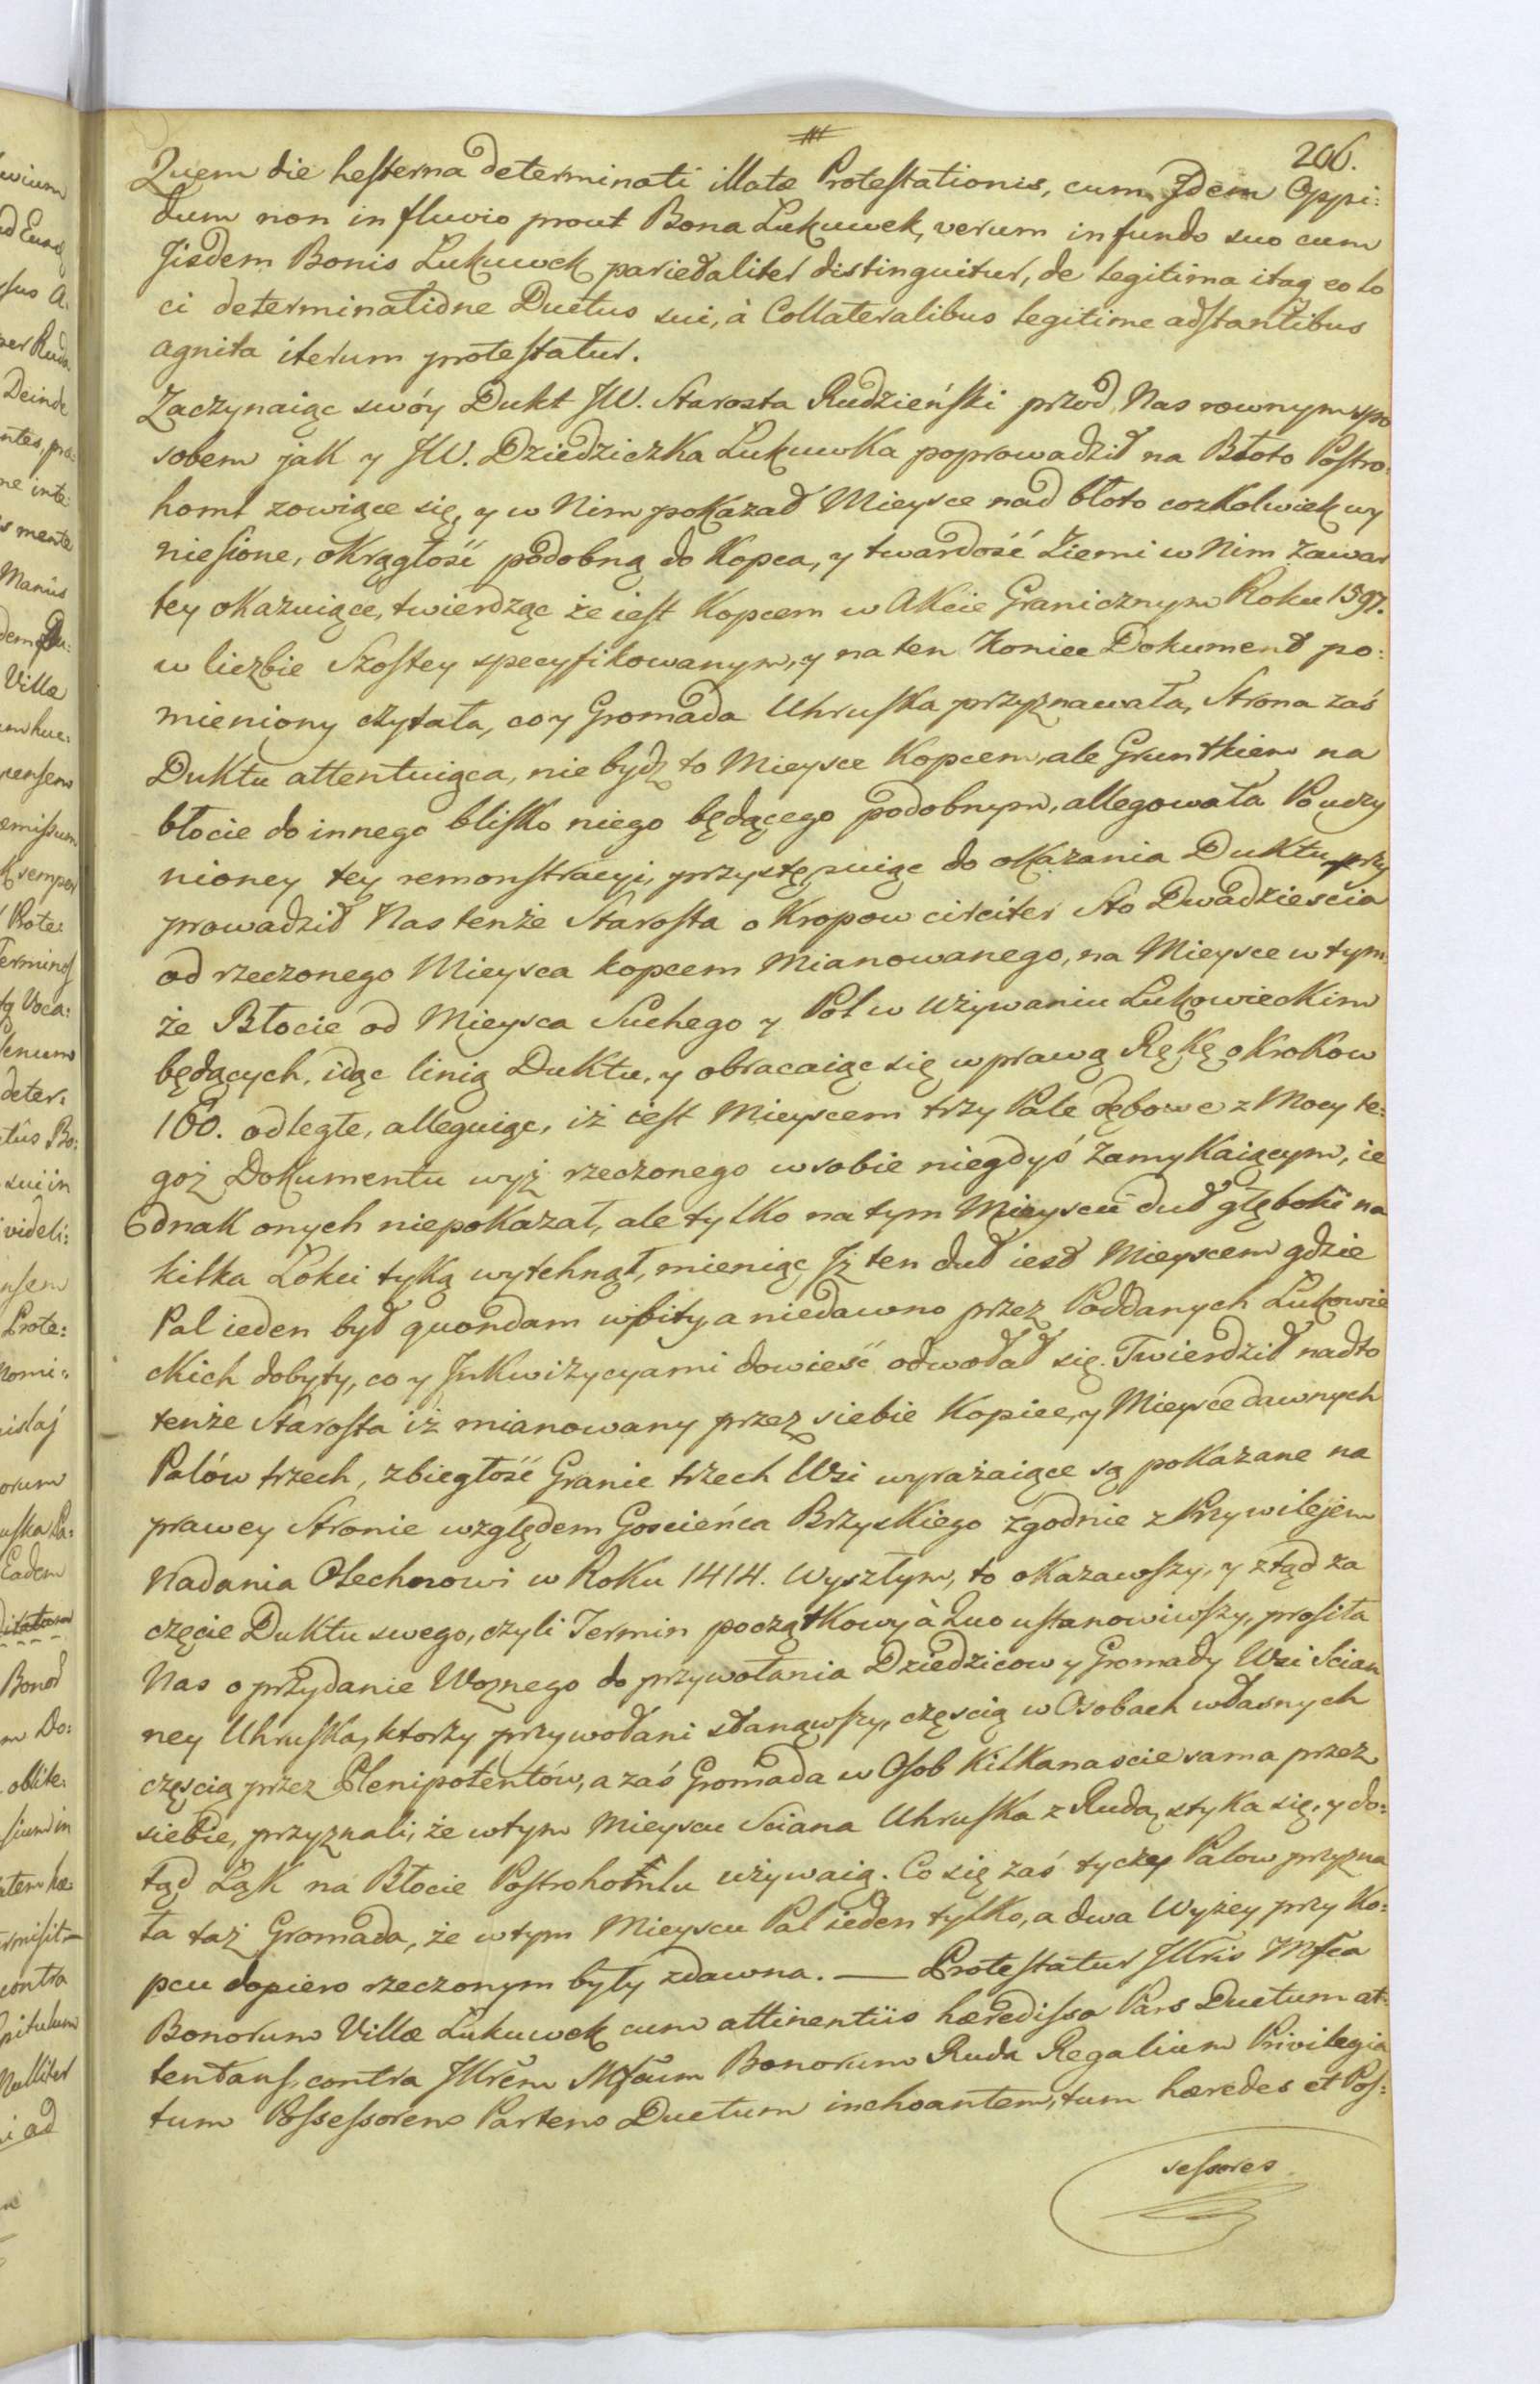 206.
Quem die hesterna determinati illatæ Protestationis, cum Idem Oppi:
dum non in fluvio prout Bona Lukuwek, verum in fundo suo cum
Jisdem Bonis Lukuwek pariedaliter distinguitur, de legitima itaq eo lo
ci determinatione Ductus sui, à Collateralibus legitime adstantibus
agnita iterum protestatur.
Zaczynaiąc swóy Dukt JW. Starosta Rudzieński przod Nas rownym spo
sobem jak y JW. Dziedziczka Lukuwka poprowadził na Błoto Postro:
homl zowiące się, y w Nim pokazał Mieysce nad błoto cozkolwiek wy
niesione, okrągłość podobną do Kopca, y twardość Ziemi w Nim zawar
tey okazuiące, twierdząc że iest Kopcem w Akcie Granicznym Roku 1597.
w liczbie Szostey specyfikowanym, y na ten Koniec Dokument po:
mieniony czytała, co y Gromada Uhruska przyznawała, Strona zaś
Duktu attentuiąca, nie bydź to Mieysce Kopcem, ale Gruntkiem na
błocie do innego blisko niego będącego podobnym, allegowała Po uczy
nioney tey remonstracyi, przystępuiąc do okazania Duktu, przy
prowadził Nas tenże Starosta o Kropow circiter Sto Dwadziescia
od rzeczonego Mieysca kopcem Mianowanego, na Mieysce w tym
że Błocie od Mieysca Suchego y Pol w Używaniu Lukowieckim
będących, idąc linią Duktu, y obracaiąc się w prawą Rękę o Krokow
160. odległe, alleguiąc, iż iest Mieyscem trzy Pale dębowe z Mocy te:
goż Dokumentu wyż rzeczonego w sobie niegdyś Zamykaiącym, ie
dnak onych niepokazał, ale tylko na tym Mieyscu duł głęboki na
kilka Łokci tyką wytchnął, mieniąc Jż ten duł iest Mieyscem gdzie
Pal ieden był quondam wbity, a niedawno przez Poddanych Lukowie
ckich dobyty, co y Jnkwizycyami dowieść odwołał się. Twierdził nadto
tenże Starosta iż mianowany przez siebie Kopiec, y Mieysce dawnych
Palów trzech, zbiegłość Granic trzech Wsi wyrażaiące są pokazane na
prawey Stronie względem Gościeńca Brzyskiego zgodnie z Przywilejem
Nadania Olechnowi w Roku 1414. Wyszłym, to okazawszy, y ztąd za
częcie Duktu swego, czyli Termin początkowy à Quo ustanowiwszy, prosiła
Nas o przydanie Woznego do przywołania Dziedzicow y Gromady Wsi Scian
ney Uhruska, ktorzy przywołani stanąwszy, częscią w Osobach własnych
częscią przez Plenipotentów, a zaś Gromada w Osob Kilkanascie sama przez
siebie, przyznali, że w tym Mieyscu Sciana Uhruska z Rudą styka się, y do:
tąd Ląk na Błocie Postrohomlu używaią. Co się zaś tycze Palow przyzna
ła taż Gromada, że w tym Mieyscu Pal ieden tylko, a dwa Wyżey przy Ko:
pcu dopiero rzeczonym były zdawna. — Protestatur Jllris Mfca
Bonorum Villæ Lukuwek cum attinentiis hæredissa Pars Ductum at:
tentans, contra Jllrem Mfcum Bonorum Ruda Regalium Privilegia
tum Possessorem Partem Ductum inchoantem, tum hæredes et Pos:
sessores